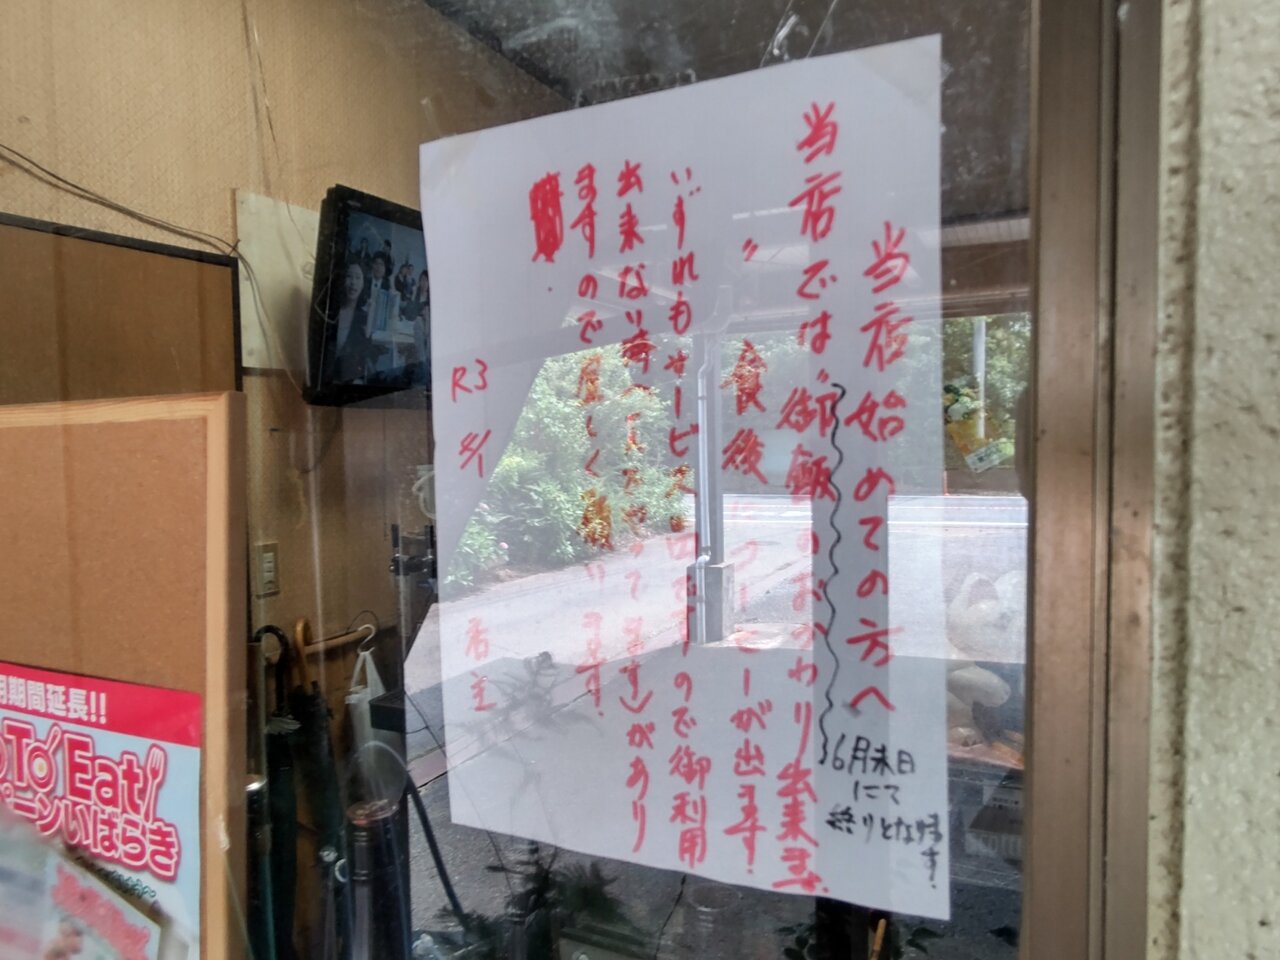 当店始めての方へ
当店では〝御飯のおかわり出来ます。
〃 食後にコーヒーが出ます!
いずれもサービス品ですので御利用
出来ない時
があり
ますので宜しく願います!
R3 4/1
店主
6月末日
にて
終りとな
す!
期間延長!!
To Eat
ーンいばらき